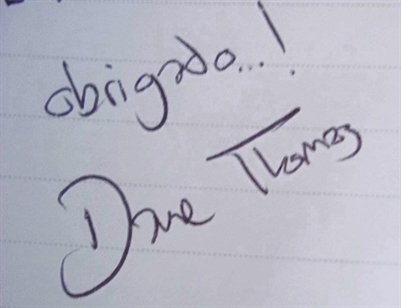 obrigado...!
Dave Thomas